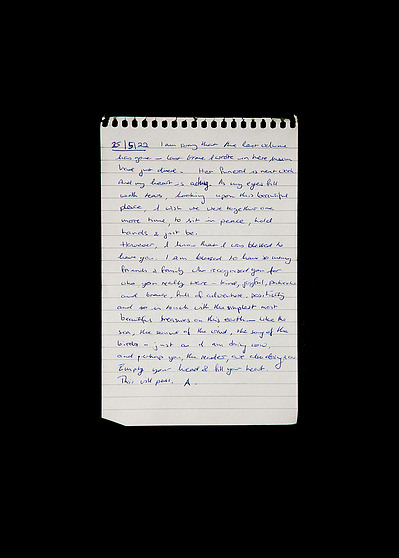 25/5/22 I am sorry that the last volume
has gone - last time I wrote in here, mum
have just died. Her funeral is next week.
And my heart is aching. As my eyes fill
with tears, looking upon this beautiful
place, I wish we were together one
more time, to sit in peace, hold
hands & just be.
However, I know that I was blessed to
have you. I am blessed to have so many
friends & family who recognised you for
who you really were - kind, joyful,
and brave, full of adventure, positivity
and so in touch with the simplest most
beautiful treasures on this earth - like the
sea, the sound of the wind, the song of the
birds - just as I am doing now,
and perhaps you, the reader, are also doing now.
Empty your head & fill your heart.
This will pass. A.